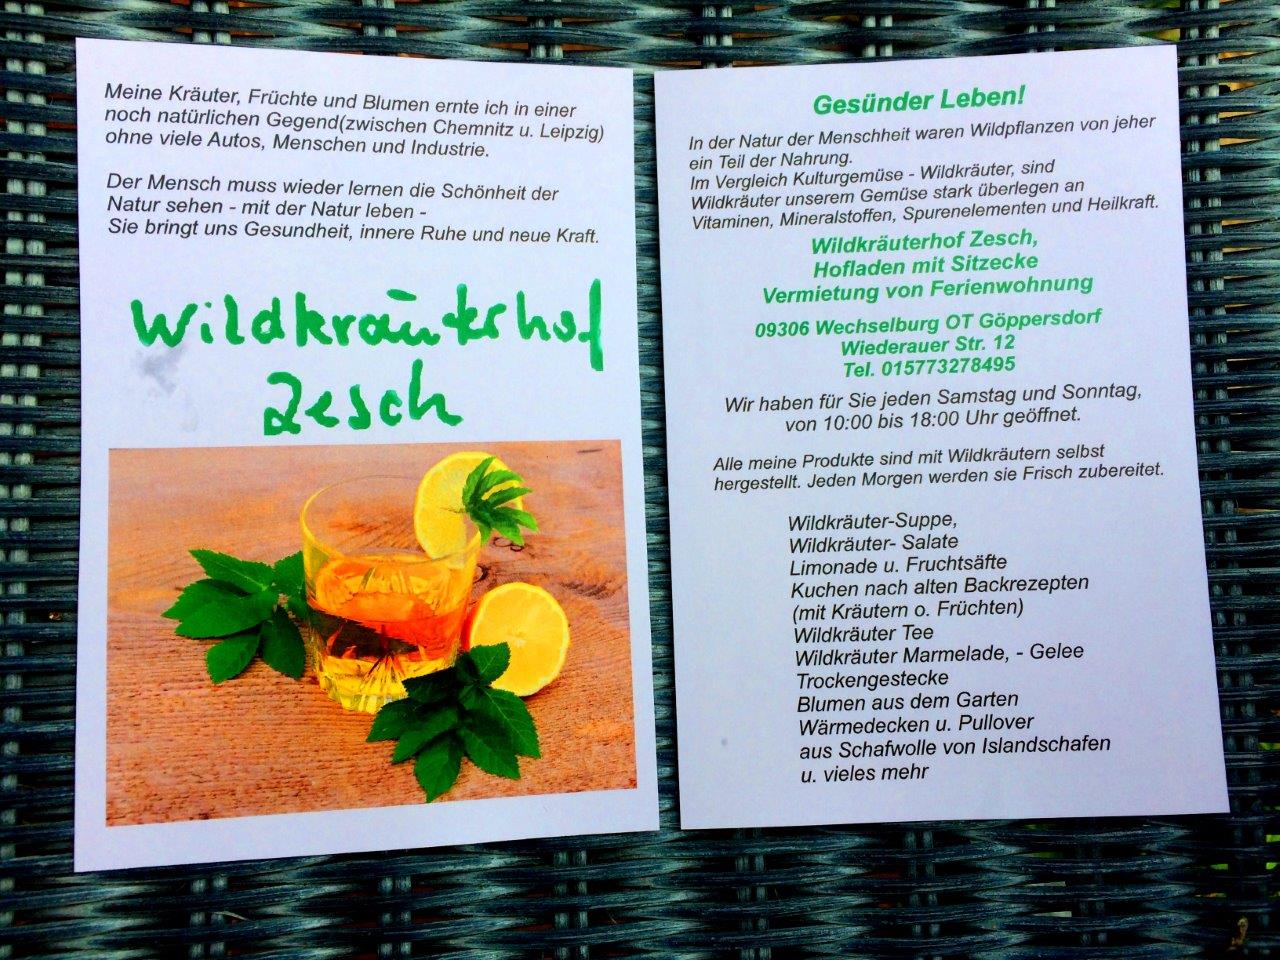 Meine Kräuter, Früchte und Blumen ernte ich in einer
noch natürlichen Gegend(zwischen Chemnitz u. Leipzig)
ohne viele Autos, Menschen und Industrie.
Der Mensch muss wieder lernen die Schönheit der
Natur sehen - mit der Natur leben -
Sie bringt uns Gesundheit, innere Ruhe und neue Kraft.
Wildkräuterhof
Zesch
Gesünder Leben!
In der Natur der Menschheit waren Wildpflanzen von jeher
ein Teil der Nahrung.
Im Vergleich Kulturgemüse - Wildkräuter, sind
Wildkräuter unserem Gemüse stark überlegen an
Vitaminen, Mineralstoffen, Spurenelementen und Heilkraft.
Wildkräuterhof Zesch,
Hofladen mit Sitzecke
Vermietung von Ferienwohnung
09306 Wechselburg OT Göppersdorf
Wiederauer Str. 12
Tel. 015773278495
Wir haben für Sie jeden Samstag und Sonntag,
von 10:00 bis 18:00 Uhr geöffnet.
Alle meine Produkte sind mit Wildkräutern selbst
hergestellt. Jeden Morgen werden sie Frisch zubereitet.
Wildkräuter-Suppe,
Wildkräuter- Salate
Limonade u. Fruchtsäfte
Kuchen nach alten Backrezepten
(mit Kräutern o. Früchten)
Wildkräuter Tee
Wildkräuter Marmelade, - Gelee
Trockengestecke
Blumen aus dem Garten
Wärmedecken u. Pullover
aus Schafwolle von Islandschafen
u. vieles mehr